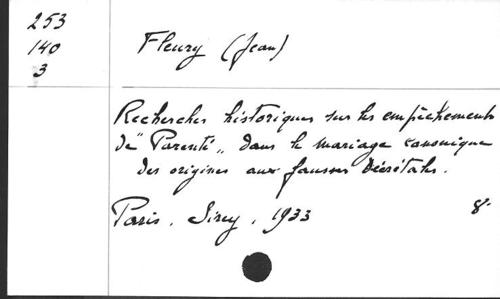 253
140
3
Fleury (Jean)
Recherches historiques sur les empêchements
de "Parenté" dans le mariage canonique
des origines aux fausses Décrétales.
Paris, Sirey, 1933 8°